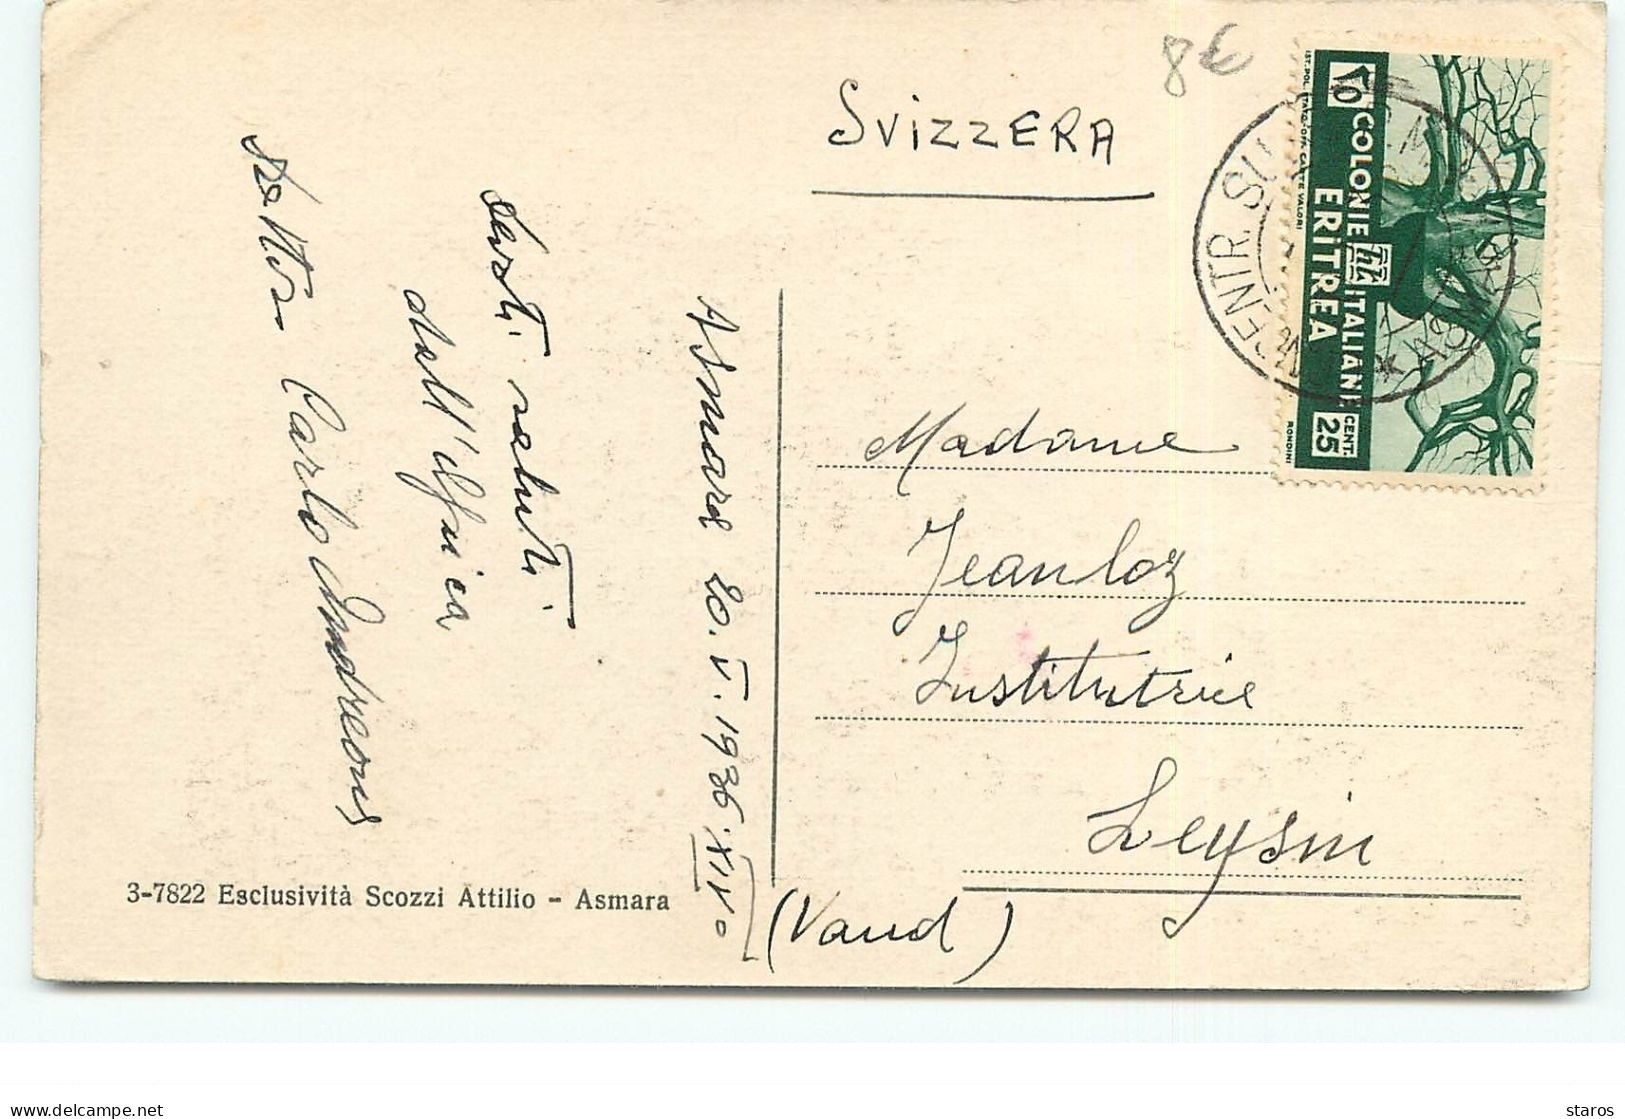 8€
SVIZZERA
COLONIE ITALIANE
ERITREA
CENT.
25
RONDINI
IST. POL. STATO-OFF. CARTE VALORI
Asmara 20.V.1936.XIV°
saluti
dall'Africa
Carlo
Madame
Jeanloz
Institutrice
Leysin
(Vaud)
3-7822 Esclusività Scozzi Attilio - Asmara
delcampe.net
staros